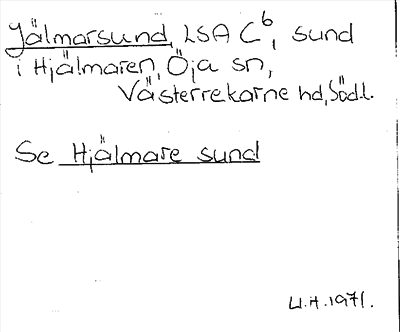 Jälmarsund, LSA C⁶, sund
i Hjälmaren, Öja sn,
Västerrekarne hd, Södl.
Se Hjälmare sund
U.H. 1971.